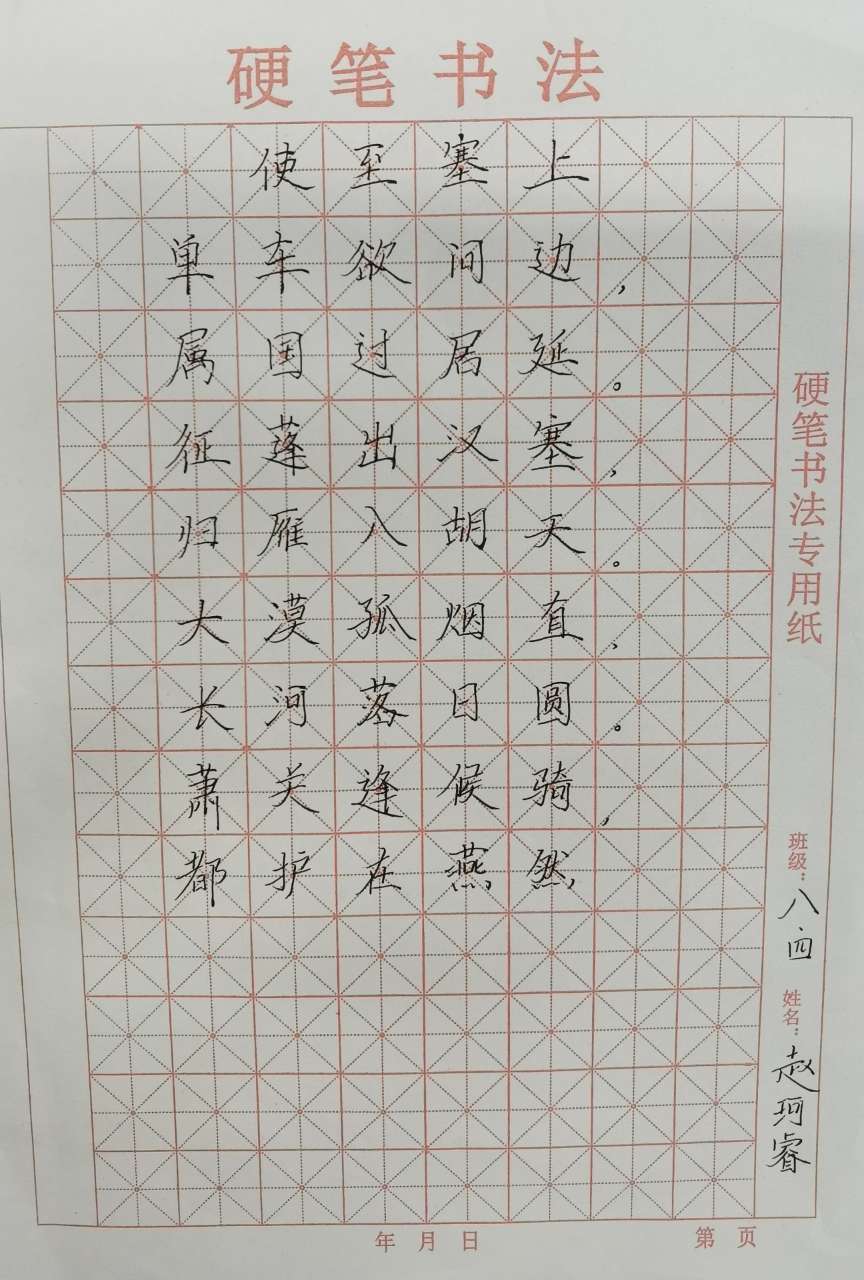 硬笔书法
使至塞上
单车欲问边，
属国过居延。
征蓬出汉塞，
归雁入胡天。
大漠孤烟直，
长河落日圆。
萧关逢候骑，
都护在燕然
硬笔书法专用纸
班级：八·四
姓名：赵珂睿
年 月 日
第 页